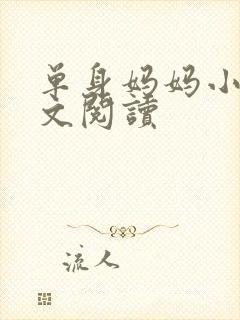 单身妈妈小
文閱讀
流人